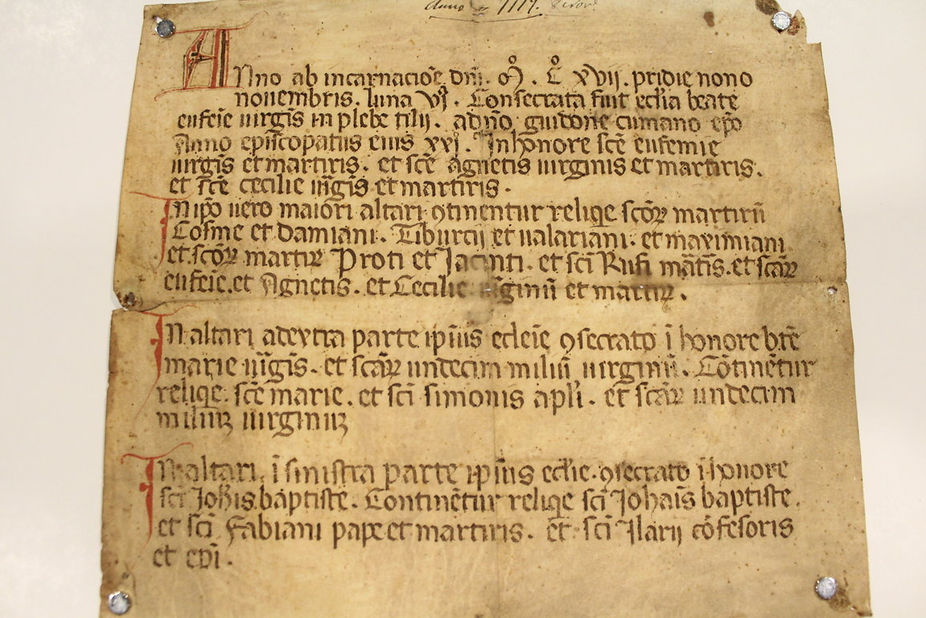 Anno 1117.
ANno ab incarnacio͞e dn͞i. M̊. C̊ xvij. pridie nono
nouembris. luna vj. Consecrata fuit ecl͞ia beate
eufeie uirgi͞s in plebe tilij. a do͞no guidone cumano ep͞o
Anno episcopatus eius xxj. In honore sc͞e eufemie
uirgi͞s et martiris. et sc͞e Agnetis uirginis et martiris.
et sc͞e cecilie ui͞gi͞s et martiris.
IN ip͞o uero maiori altari ꝯtinentur reliqe sco͞ꝝ martirū
Cosme et damiani. Tiburcij et ualariani. et maximiani
et sco͞ꝝ martiꝝ Proti et Jacinti. et sc͞i Rufi ma͞tis. et sca͞ꝝ
eufei͞e. et Agnetis. et Cecilie ui͞ginū et martiꝝ.
IN altari adextra parte ip͞ius eclei͞e ꝯsecrato ī honore bt͞e
marie ui͞gi͞s. et sca͞ꝝ undecim miliū uirginū. Co͞tine͞tur
reliqe. sc͞e marie. et sc͞i simonis apl͞i. et sca͞ꝝ undecim
miliuꝫ uirginuꝫ
IN altari. ī sinistra parte ip͞ius ecl͞ie. ꝯsecrato ī honore
sc͞i Joh͞is baptiste. Contine͞tur reliqe sc͞i Joha͞is baptiste.
et sc͞i Fabiani pape et martiris. et sc͞i Jlarij co͞fesoris
et ep͞i.